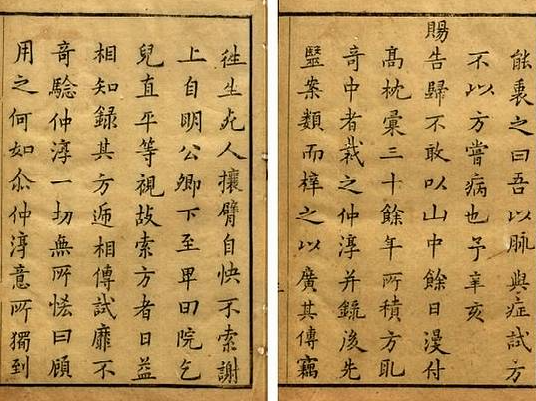 能裹之曰吾以脉與症試方
不以方嘗病也予辛亥
賜告歸不敢以山中餘日漫付
髙枕彙三十餘年所積方取
竒中者裁之仲淳并錄後先
毉案類而梓之以廣其傳竊
徃生死人攘臂自快不索謝
上自明公卿下至卑田院乞
兒直平等視故索方者日益
相知録其方逓相傳試靡不
竒驗仲淳一切無所恡曰顧
用之何如尒仲淳意所獨到